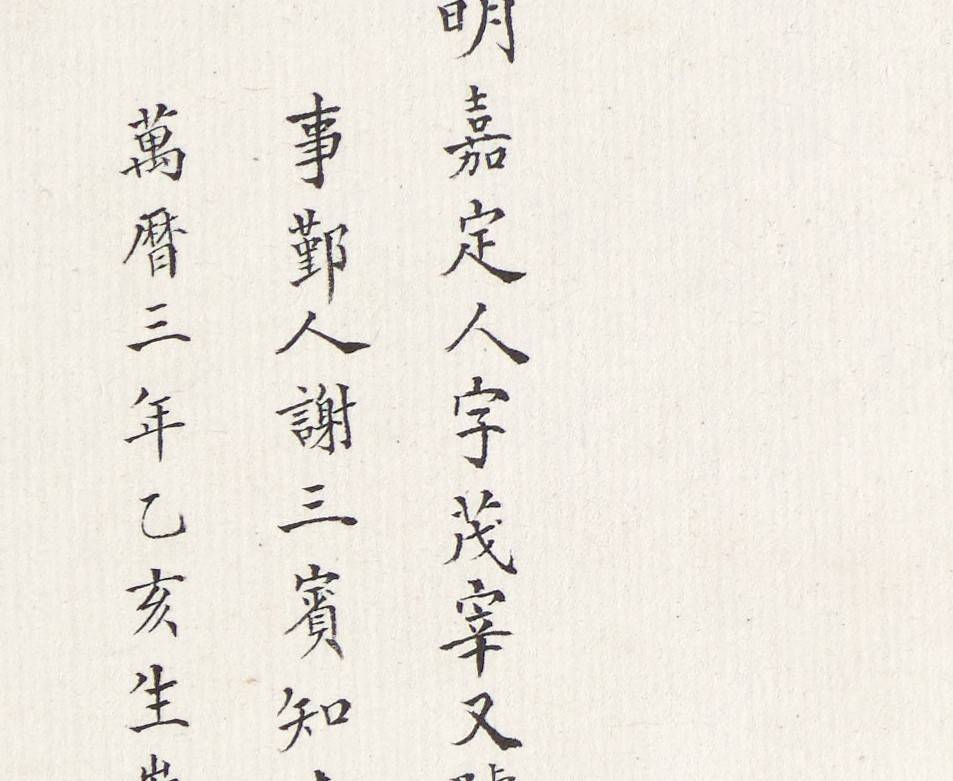 明嘉定人字茂宰又號
事鄞人謝三賓知
萬曆三年乙亥生